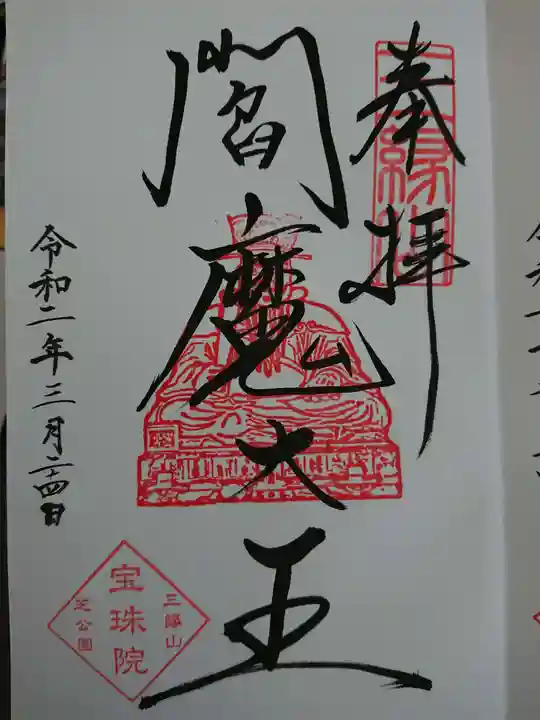 奉拝
閻魔大王
令和二年三月二十四日
三縁山
宝珠院
芝公園